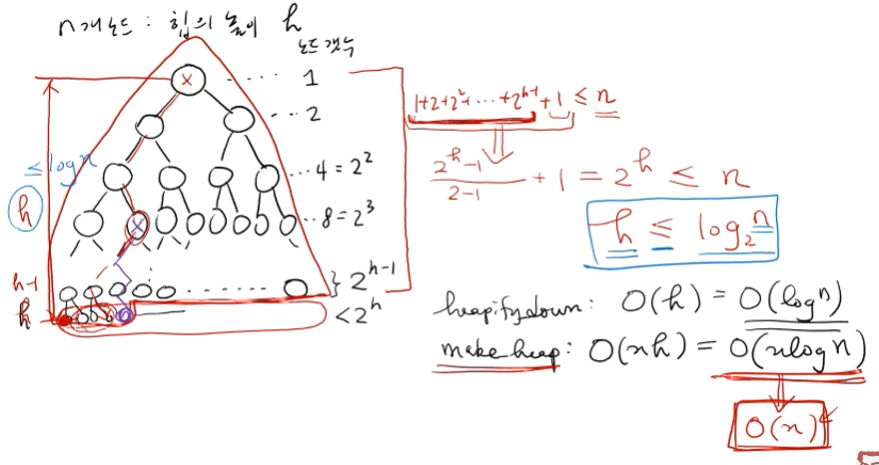 n개 노드 : 힙의 높이 h
노드 갯수
1
2
4 = 2²
8 = 2³
} 2^{h-1}
< 2^h
≤ log n
h
h-1
h
x
x
1+2+2²+ ... +2^{h-1} + 1 ≤ n
(2^h - 1)/(2-1) + 1 = 2^h ≤ n
h ≤ log₂ n
heapifydown : O(h) = O(log n)
make heap : O(nh) = O(n log n)
O(n)